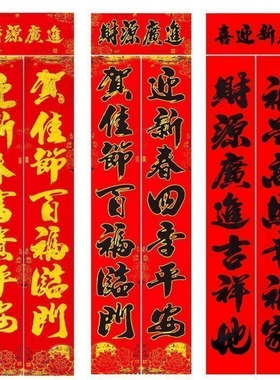 源廣進
迎新春富貴平安
賀佳節百福臨門
財源廣進
賀佳節百福臨門
迎新春四季平安
喜迎新
財源廣進吉祥地